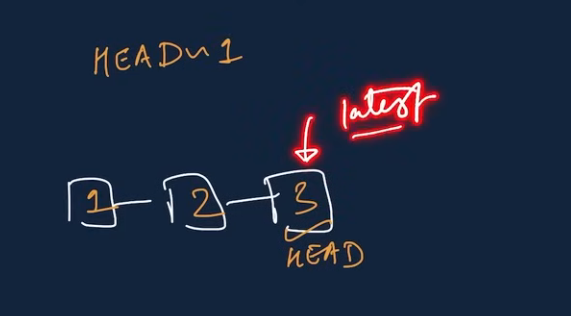 HEAD~1
latest
1 2 3
HEAD